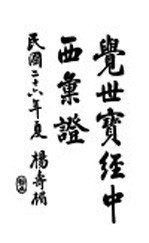 覺世寶經中
西彙證
民國二十六年夏
楊壽枏